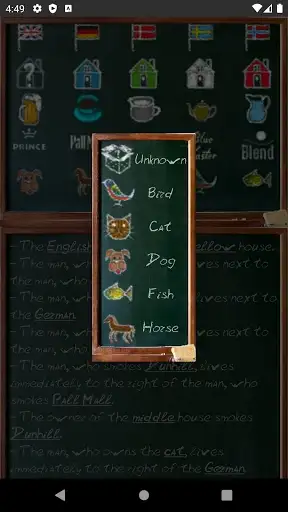 4:49
PRINCE
Pall M
Blue
aster
Blend
Unknown
Bird
Cat
Dog
Fish
Horse
- The English ellow house.
- The man, w lives next to
the man, wh
- The man, w lives next to
the German.
- The man, w lives next to
the man, wh
- The man, who smokes Dunhill, lives
immediately to the right of the man, who
smokes Pall Mall.
- The owner of the middle house smokes
Dunhill.
- The man, who owns the cat, lives
immediately to the right of the German.